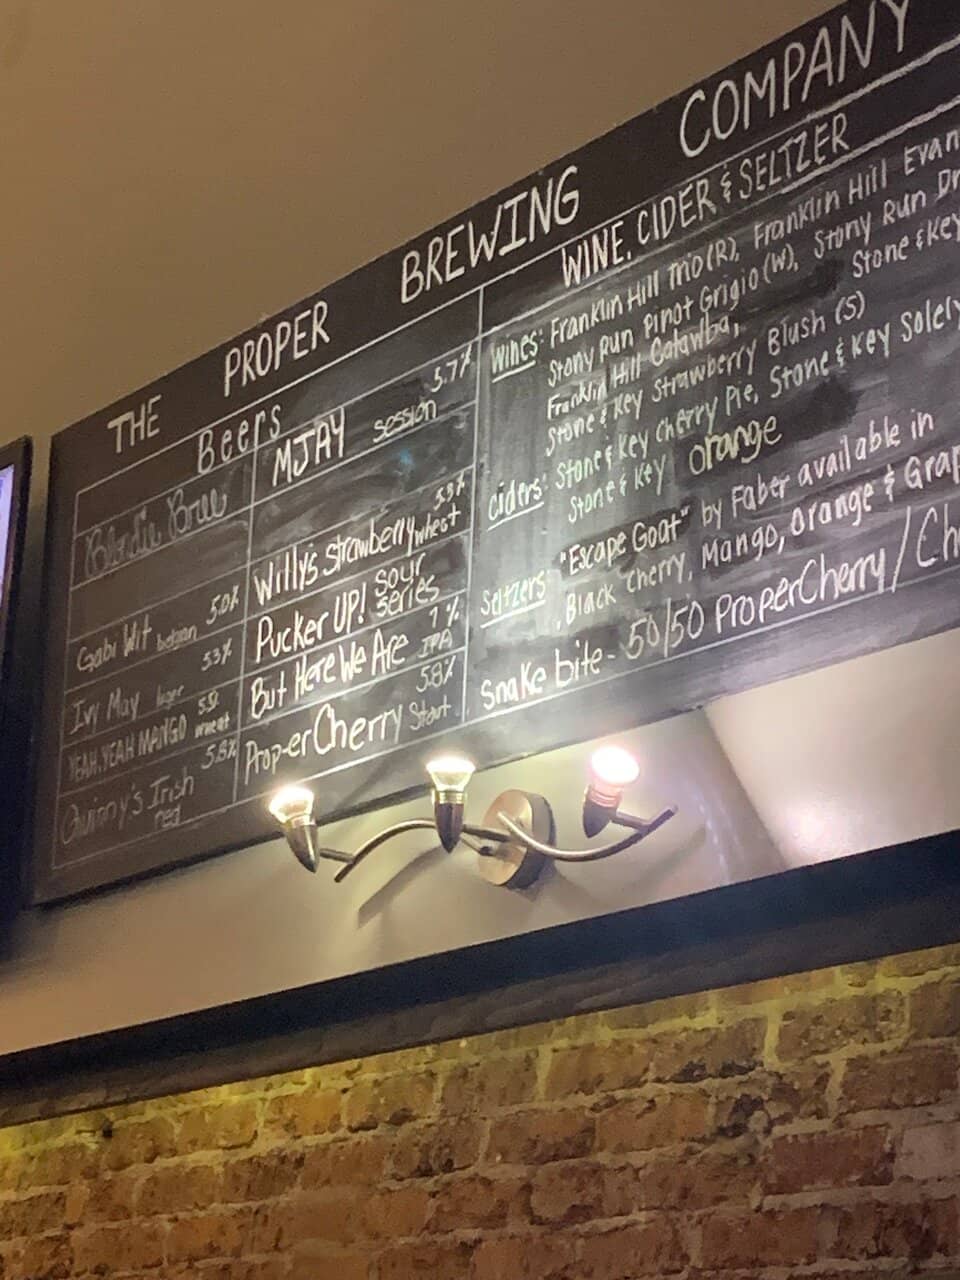 THE PROPER BREWING COMPANY
Beers
Gabi Wit belgian 5.0%
Ivy May 5.3%
YEAH, YEAH MANGO wheat
Quinny's Irish red 5.8%
MJAY session 5.7%
Willy's Strawberry wheat
Pucker UP! sour series
But Here We Are IPA 7%
Proper Cherry Stout 5.8%
WINE, CIDER & SELTZER
Wines: Franklin Hill Trio (R), Franklin Hill Evan
Stony Run Pinot Grigio (W), Stony Run Dr
Franklin Hill Catawba, Stone & Key
Stone & Key Strawberry Blush (S)
Ciders: Stone & Key Cherry Pie, Stone & Key Solely
Stone & Key orange
Seltzers: "Escape Goat" by Faber available in
Black Cherry, Mango, Orange & Grap
Snake bite - 50/50 Proper Cherry / Ch